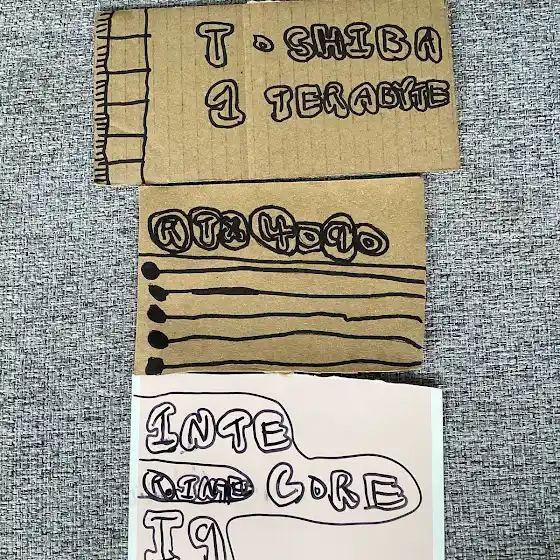 TOSHIBA
1 TERABYTE
RTX4090
INTE
CORE
I9